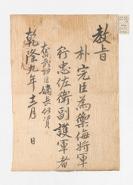 敎旨
朴完臣為禦侮將軍
行忠佐衛副護軍者
乾隆九年十二月 日